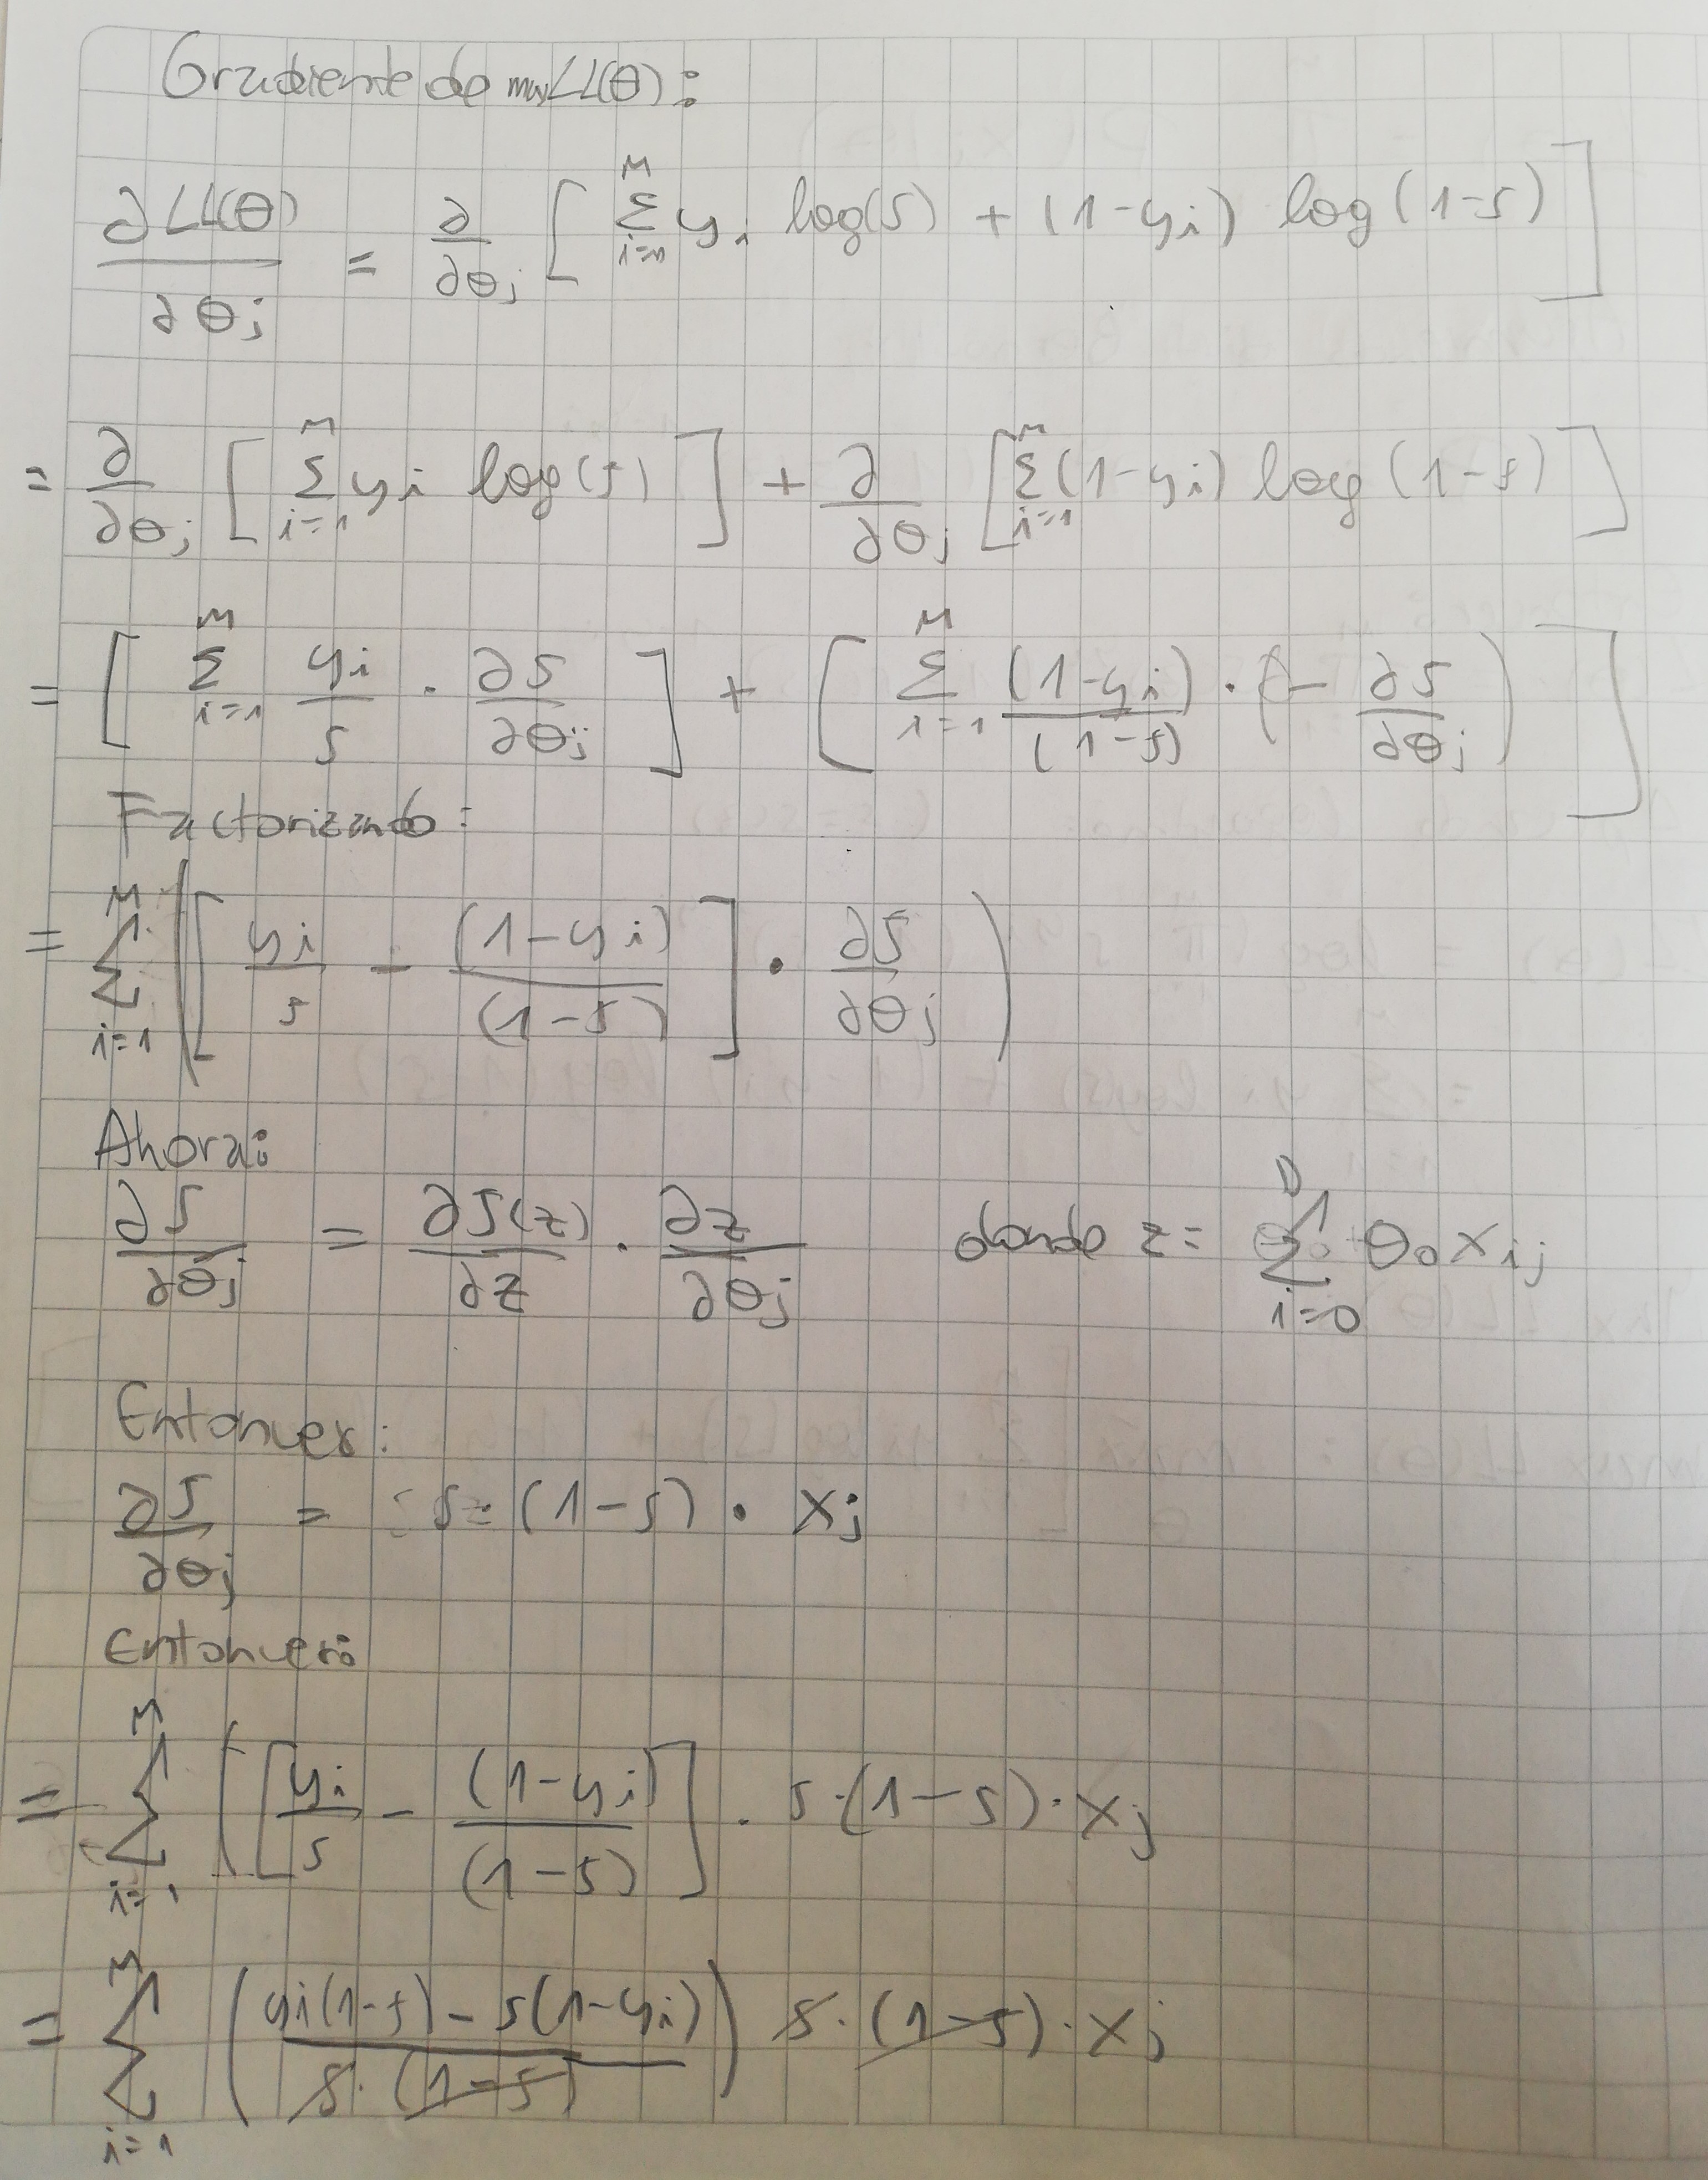 Gradiente de max LL(θ):
∂LL(θ)/∂θj = ∂/∂θj [ Σ_{i=1}^{M} yi log(s) + (1-yi) log(1-s) ]
= ∂/∂θj [ Σ_{i=1}^{M} yi log(s) ] + ∂/∂θj [ Σ_{i=1}^{M} (1-yi) log(1-s) ]
= [ Σ_{i=1}^{M} yi/s · ∂s/∂θj ] + [ Σ_{i=1}^{M} (1-yi)/(1-s) · (- ∂s/∂θj) ]
Factorizando:
= Σ_{i=1}^{M} ( [ yi/s - (1-yi)/(1-s) ] · ∂s/∂θj )
Ahora:
∂s/∂θj = ∂s(z)/∂z · ∂z/∂θj donde z = Σ_{i=0}^{D} θ0 xij
Entonces:
∂s/∂θj = s · (1-s) · xj
Entonces:
= Σ_{i=1}^{M} ( [ yi/s - (1-yi)/(1-s) ] · s·(1-s)·xj
= Σ_{i=1}^{M} ( (yi(1-s) - s(1-yi))/(s·(1-s)) ) s·(1-s)·xj